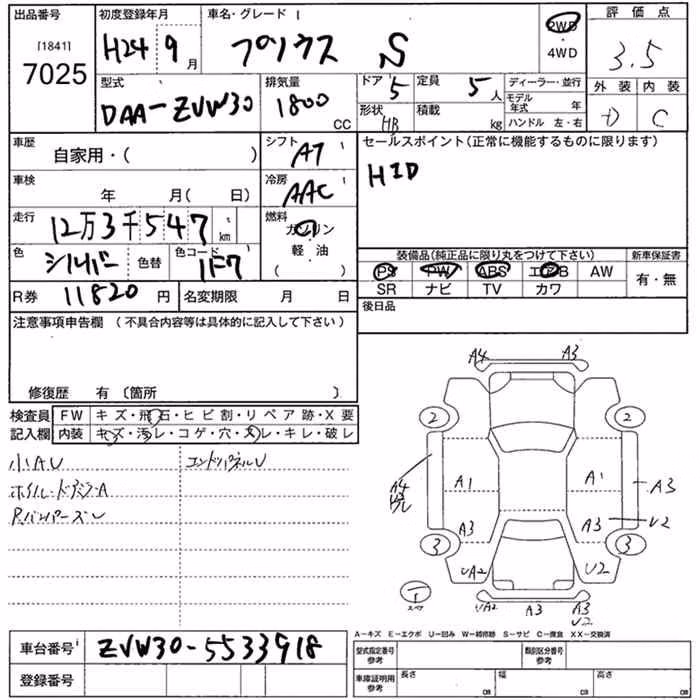 出品番号 初度登録年月 車名・グレード 評価点
[1841]
7025
H24 9月 プリウス S 2WD・4WD 3.5
型式 排気量 ドア 定員 ディーラー・並行 外装 内装
DAA-ZVW30 1800 CC 5 5人 モデル年式 年 D C
形状 HB 積載 kg ハンドル 左・右
車歴 シフト セールスポイント(正常に機能するものに限ります)
自家用・( ) AT HID
車検 冷房
年 月( 日) AAC
走行 燃料
12万3千547km ガソリン
軽・油
( )
色 色替 色コード 装備品(純正品に限り丸をつけて下さい) 新車保証書
シルバー 1F7 PS PW ABS エアB AW 有・無
R券 11820円 名変期限 月 日 SR ナビ TV カワ
後日品
注意事項申告欄 (不具合内容等は具体的に記入して下さい)
修復歴 有 〔箇所 〕
検査員 FW キズ・飛石・ヒビ割・リペア跡・X要
記入欄 内装 キズ・汚レ・コゲ・穴・スレ・キレ・破レ
小AU エンドパネルU
ホイル・ドアミラーA
Rバンパーズレ
A4 A3
2 2
A1 A1
A4 A3
A3 A3 U2
3 3
UA2 U2
スペア
UA2 A3 A3
U2
A-キズ E-エクボ U-凹み W-補修跡 S-サビ C-腐食 XX-交換済
車台番号 ZVW30-5533918 型式指定番号 参考 類別区分番号 参考
登録番号 車庫証明用 参考 長さ cm 幅 cm 高さ cm